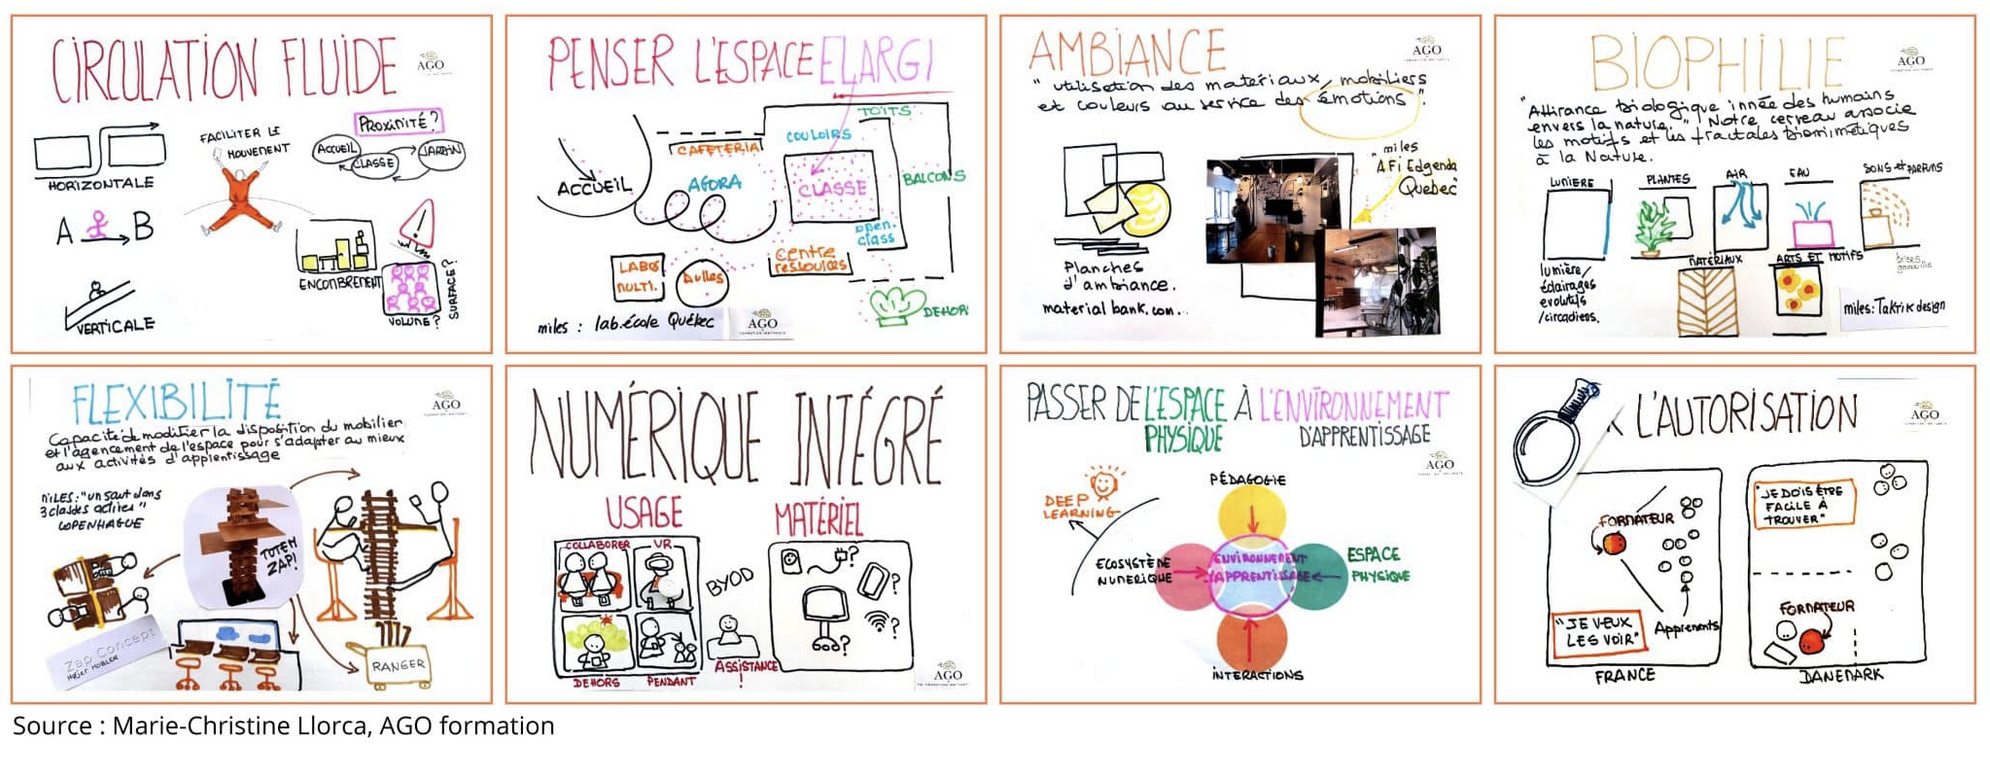 CIRCULATION FLUIDE
AGO
HORIZONTALE
FACILITER LE
MOUVEMENT
PROXIMITÉ?
ACCUEIL
CLASSE
JARDIN
A B
VERTICALE
ENCOMBREMENT
VOLUME?
SURFACE?
PENSER L'ESPACE ELARGI
TOITS
COULOIRS
CAFETERIA
ACCUEIL
AGORA
CLASSE
BALCONS
open.
class
Centre
ressources
LABOS
MULTI.
Bulles
DEHORS
miles : lab.école Québec
AGO
AMBIANCE
AGO
"utilisation des matériaux, mobiliers
et couleurs au service des émotions".
miles
AFi Edgenda
Quebec
Planches
d'ambiance.
material bank.com...
BIOPHILIE
AGO
"Attirance biologique innée des humains
envers la nature." Notre cerveau associe
les motifs et les fractales biomimétiques
à la Nature.
LUMIERE
PLANTES
AIR
EAU
SONS et PARFUMS
lumière/
éclairages
evolutifs
/circadiens.
MATERIAUX
ARTS ET MOTIFS
miles: Taktik design
FLEXIBILITÉ
AGO
Capacité de modifier la disposition du mobilier
et l'agencement de l'espace pour s'adapter au mieux
aux activités d'apprentissage
MILES: "un saut dans
3 classes actives"
COPENHAGUE
TOTEM
ZAP!
Zap Concept
MOBLER
RANGER
NUMÉRIQUE INTÉGRÉ
USAGE
MATÉRIEL
COLLABORER
VR
BYOD
DEHORS
PENDANT
ASSISTANCE
!
?
?
?
?
AGO
PASSER DE L'ESPACE À L'ENVIRONNEMENT
PHYSIQUE D'APPRENTISSAGE
AGO
DEEP
LEARNING
PÉDAGOGIE
ECOSYSTÈME
NUMERIQUE
ENVIRONNEMENT
D'APPRENTISSAGE
ESPACE
PHYSIQUE
INTERACTIONS
L'AUTORISATION
AGO
FORMATEUR
"JE VEUX
LES VOIR"
Apprenants
FRANCE
"JE DOIS ÊTRE
FACILE À
TROUVER"
FORMATEUR
DANEMARK
Source : Marie-Christine Llorca, AGO formation